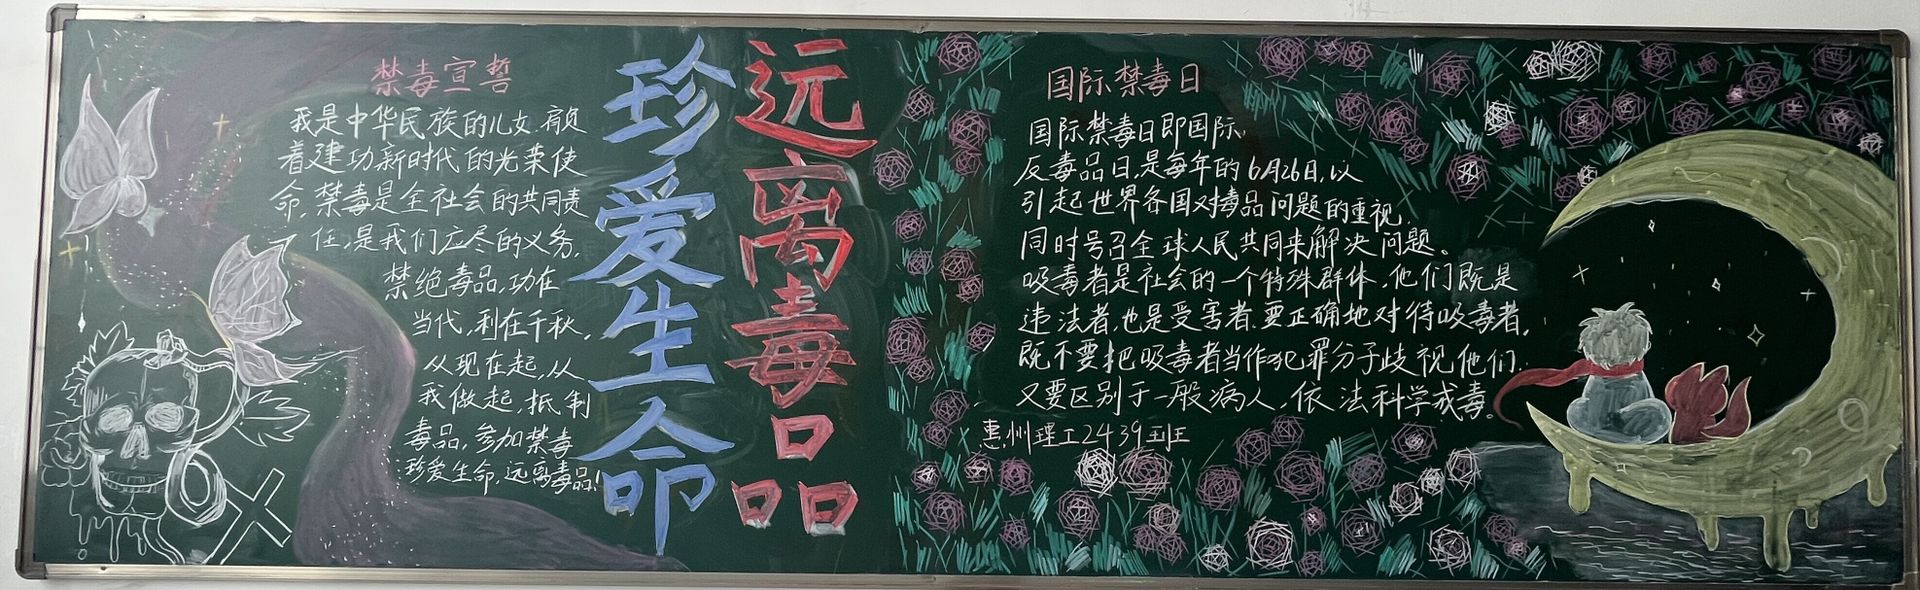 禁毒宣誓
我是中华民族的儿女,肩负
着建功新时代的光荣使
命,禁毒是全社会的共同责
任,是我们应尽的义务,
禁绝毒品,功在
当代,利在千秋,
从现在起,从
我做起,抵制
毒品,参加禁毒
珍爱生命,远离毒品!
珍爱生命
远离毒品
国际禁毒日
国际禁毒日即国际
反毒品日,是每年的6月26日,以
引起世界各国对毒品问题的重视,
同时号召全球人民共同来解决问题。
吸毒者是社会的一个特殊群体,他们既是
违法者,也是受害者,要正确地对待吸毒者,
既不要把吸毒者当作犯罪分子歧视他们,
又要区别于一般病人,依法科学戒毒。
惠州理工2439班